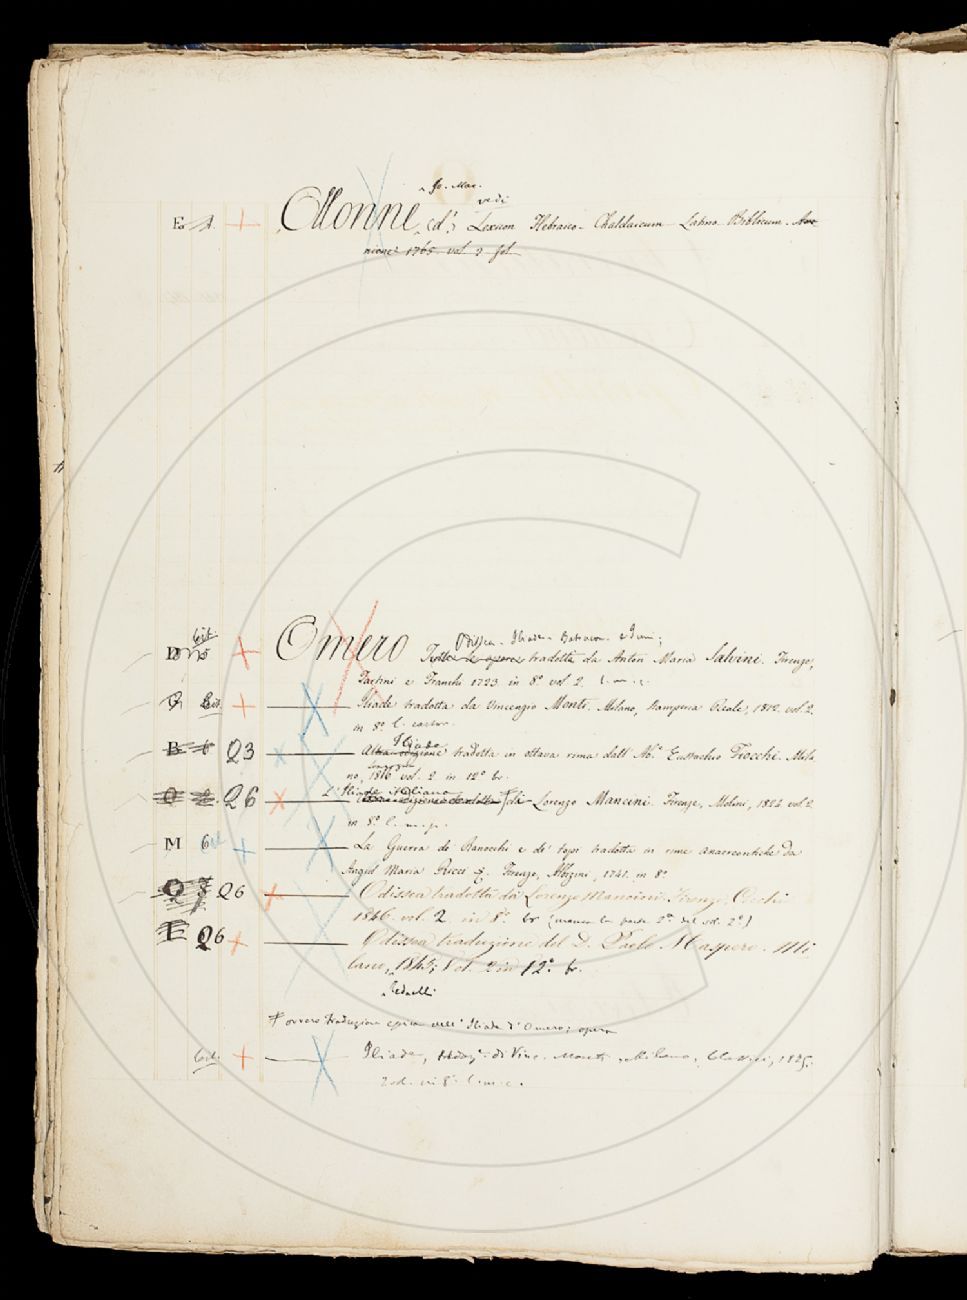 ^ Jo. Mar.
vedi
E 4 + Olonne (d') Lexicon Hebraico-Chaldaicum-Latino Biblicum. Ave-
nione 1765. vol. 2 fol.
Bibl. Odissea - Iliade - Batracom. e Inni;
D 15 + Omero Tutte le opere tradotta da Anton Maria Salvini. Firenze,
Tartini e Franchi 1723. in 8.º vol 2. l. m. c.
+ Iliade tradotta da Vincenzio Monti. Milano, Stamperia Reale, 1812. vol. 2
in 8.º
Iliade
B 6 Q3 Altra edizione tradotta in ottava rima dall' Ab.e Eustachio Fiocchi. Mila
no, 1816 vol. 2 in 12º br.
L'Iliade italiana
Q6 di Lorenzo Mancini. Firenze, Molini, 1824 vol 2
in 8.º l. m. p.
M 6 + La Guerra de' Ranocchi e de' topi tradotta in rime anacreontiche da
Angiol Maria Ricci &. Firenze, Albizzini, 1741. in 8º
Q6 Odissea tradotta da Lorenzo Mancini. Firenze, Cecchi
1846. vol. 2. in 8.º br (manca la parte 2.ª del vol. 2º)
Q6 + Odissea traduzione del D. Paolo Maspero. Mi
lano, 1845; Vol. 2 in 12º. br.
^ Redaelli
ovvero traduzione epica dell' Iliade d'Omero; opera
+ Iliade, traduz. di Vinc. Monti. Milano, Classici, 1825.
2 vol. in 8.º l. m. c.